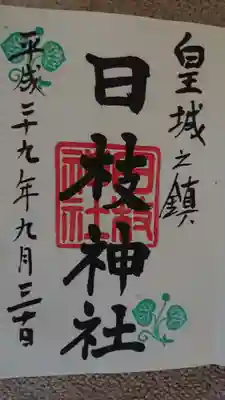 皇城之鎮
日枝神社
平成二十九年九月三十日
日枝
神社